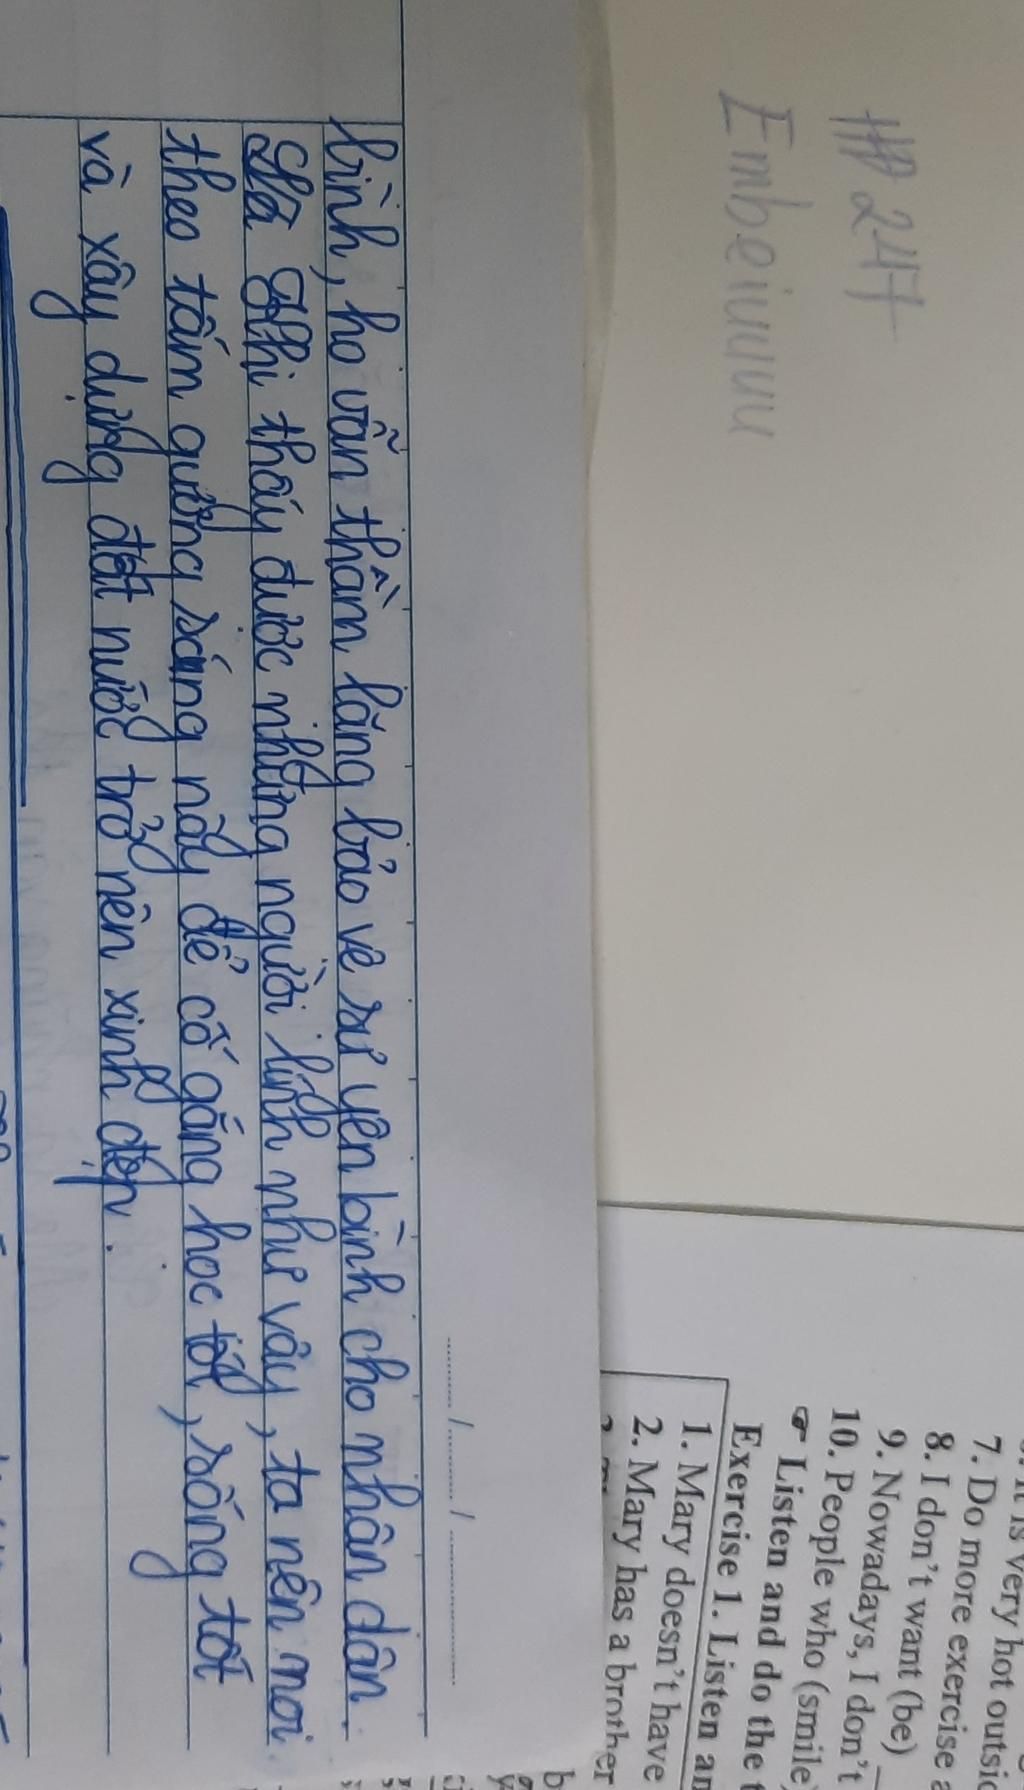 #247
Embeiuuuu
bình, họ vẫn thầm lặng bảo vệ sự yên bình cho nhân dân.
thấy được những người lính như vậy, ta nên noi
theo tấm gương sáng nãy để cố gắng học tốt, sống tốt
và xây dựng đất nước trở nên xinh đẹp.
....... /....... / ..............
very hot outsi
7. Do more exercise
8. I don't want (be)
9. Nowadays, I don't
10. People who (smile)
☞ Listen and do the
Exercise 1. Listen an
1. Mary doesn't have
2. Mary has a brother